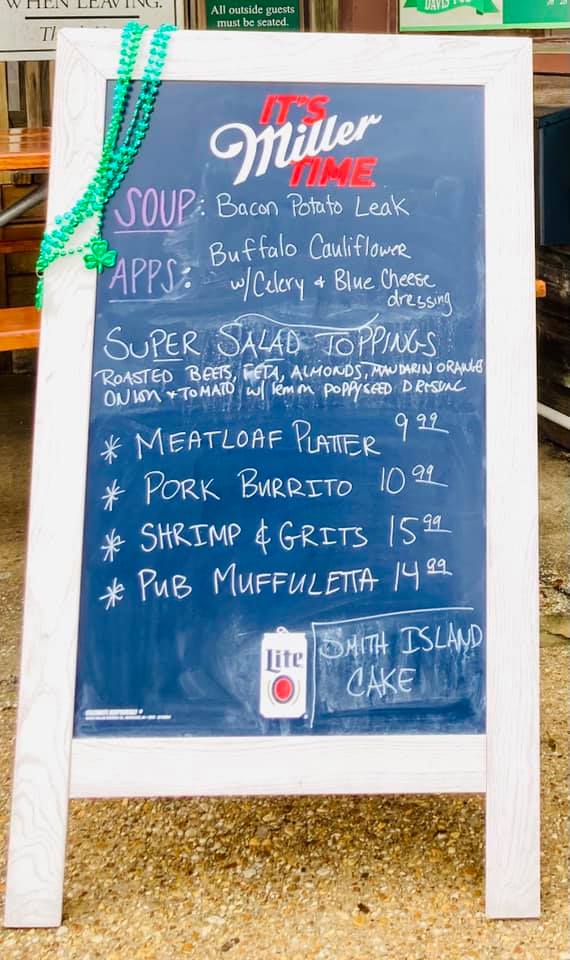 WHEN LEAVING.
All outside guests
must be seated.
DAVIS PUB
IT'S
Miller
TIME
SOUP: Bacon Potato Leak
APPS: Buffalo Cauliflower
w/Celery & Blue Cheese
dressing
SUPER SALAD TOPPINGS
ROASTED BEETS, FETA, ALMONDS, MANDARIN ORANGES
ONION + TOMATO w/ lemon POPPYSEED DRESSING
* MEATLOAF PLATTER 9 99
* PORK BURRITO 10 99
* SHRIMP & GRITS 15 99
* PUB MUFFULETTA 14 99
Lite
SMITH ISLAND
CAKE